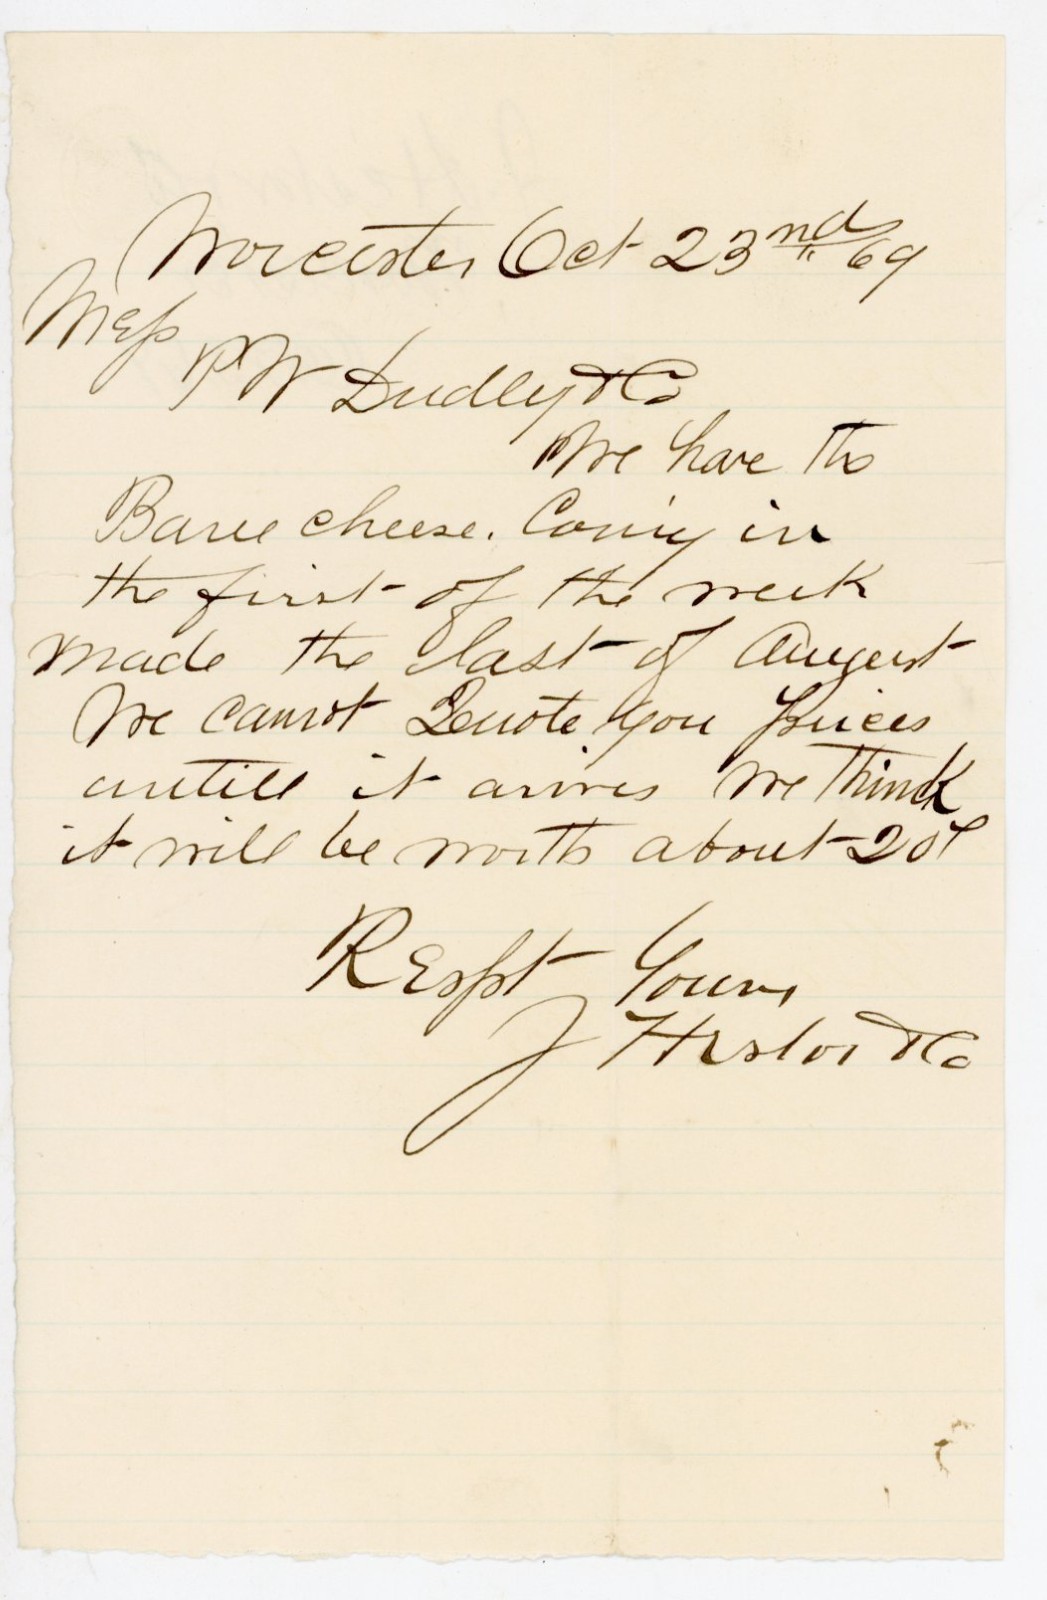 Worcester Oct 23nd "/69
Mess
P W Dudley & Co
We have the
Barre cheese. Coming in
the first of the week
made the last of August
We cannot Quote you prices
untill it arives We think
it will be worth about 20¢
Respt Yours
J & Co